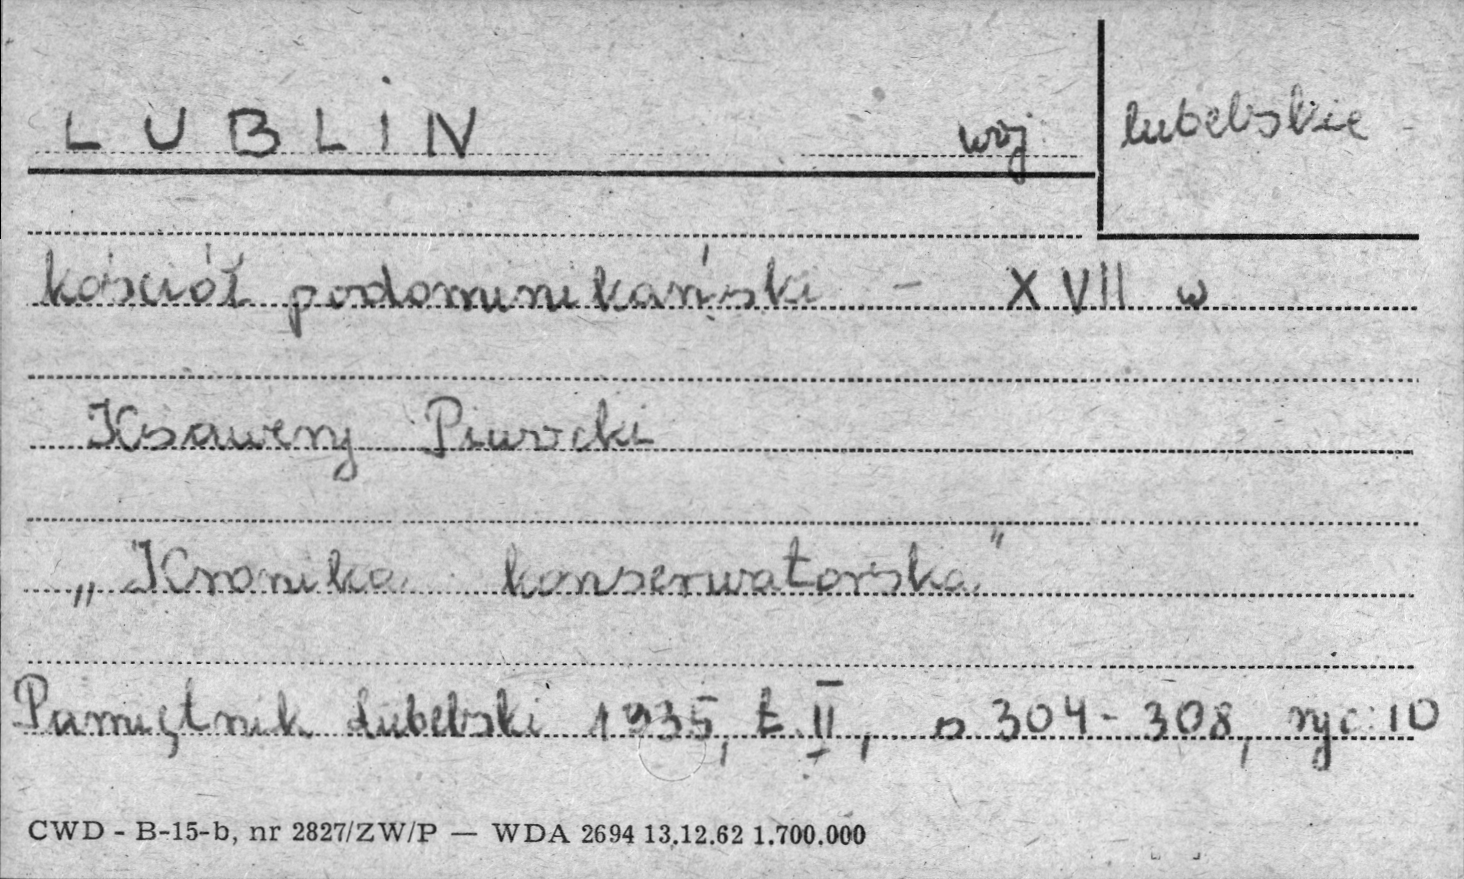 LUBLIN woj lubelskie
kościół podominikański - XVII w
Ksawery Piwocki
„Kronika konserwatorska"
Pamiętnik Lubelski 1935, t. II, s 304-308, ryc. 10
CWD - B-15-b, nr 2827/ZW/P — WDA 2694 13.12.62 1.700.000